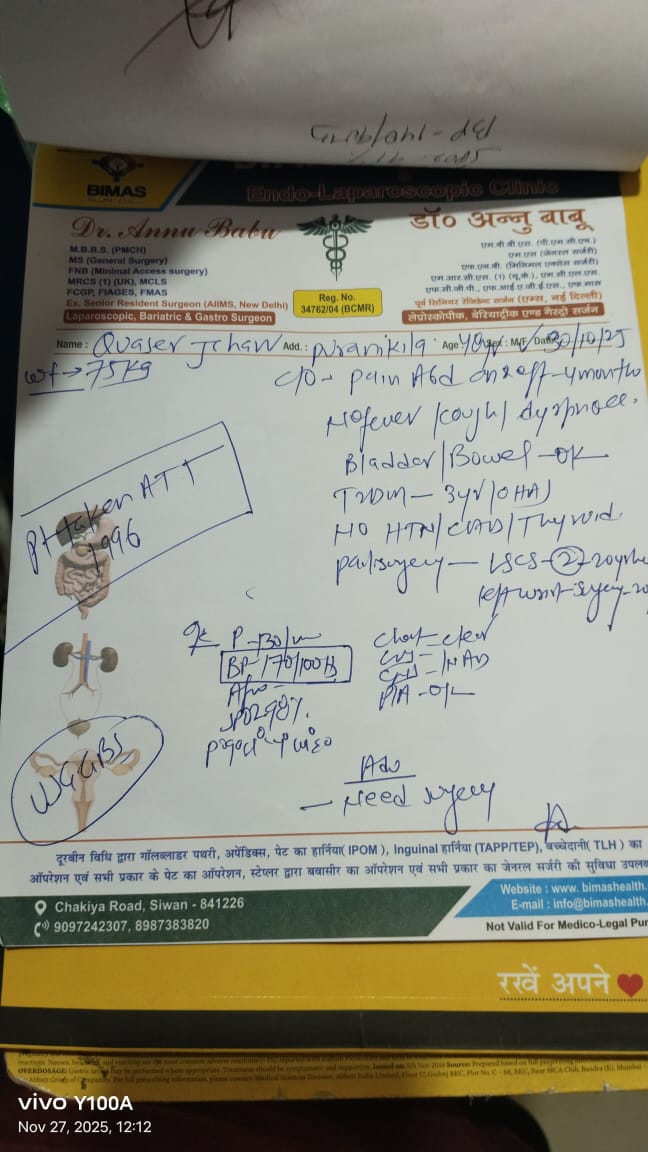 BIMAS
Endo-Laparoscopic Clinic
Dr. Annu Babu
M.B.B.S. (PMCH)
MS (General Surgery)
FNB (Minimal Access surgery)
MRCS (1) (UK), MCLS
FCGP, FIAGES, FMAS
Ex. Senior Resident Surgeon (AIIMS, New Delhi)
Laparoscopic, Bariatric & Gastro Surgeon
Reg. No.
34762/04 (BCMR)
डॉ० अन्नु बाबू
एम.बी.बी.एस. (पी.एम.सी.एच.)
एम.एस (जेनरल सर्जरी)
एफ.एन.बी. (मिनिमल एक्सेस सर्जरी)
एम.आर.सी.एस. (1) (यू.के.), एम.सी.एल.एस.
एफ.सी.जी.पी., एफ.आई.ए.जी.ई.एस., एफ.मास
पूर्व सिनियर रेजिडेन्ट सर्जन (एम्स, नई दिल्ली)
लेप्रोस्कोपीक, बेरियाट्रीक एण्ड गैस्ट्रो सर्जन
Name : Add. : Age 40yr Sex : M/F Date 30/10/25
wt → 75kg
C/O - Pain Abd on & off - 4 months
No fever / cough / dyspnoea.
Bladder / Bowel - OK
T2DM - 3yr / OHA
NO HTN / CAD / Thyroid
Past surgery - LSCS - 2 - 20yrs
left wrist surgery
Pt taken ATT
1996
BP - 170/100
SPO2 98%
Chest - clear
CVS -
CNS - NAD
P/A - OK
Adv
- Need surgery
दूरबीन विधि द्वारा गॉलब्लाडर पथरी, अपेंडिक्स, पेट का हार्निया( IPOM ), Inguinal हार्निया (TAPP/TEP), बच्चेदानी( TLH ) का
ऑपरेशन एवं सभी प्रकार के पेट का ऑपरेशन, स्टेप्लर द्वारा बवासीर का ऑपरेशन एवं सभी प्रकार का जेनरल सर्जरी की सुविधा
Chakiya Road, Siwan - 841226
9097242307, 8987383820
Website : www. bimashealth.
E-mail : info@bimashealth.
Not Valid For Medico-Legal
रखें अपने
vivo Y100A
Nov 27, 2025, 12:12